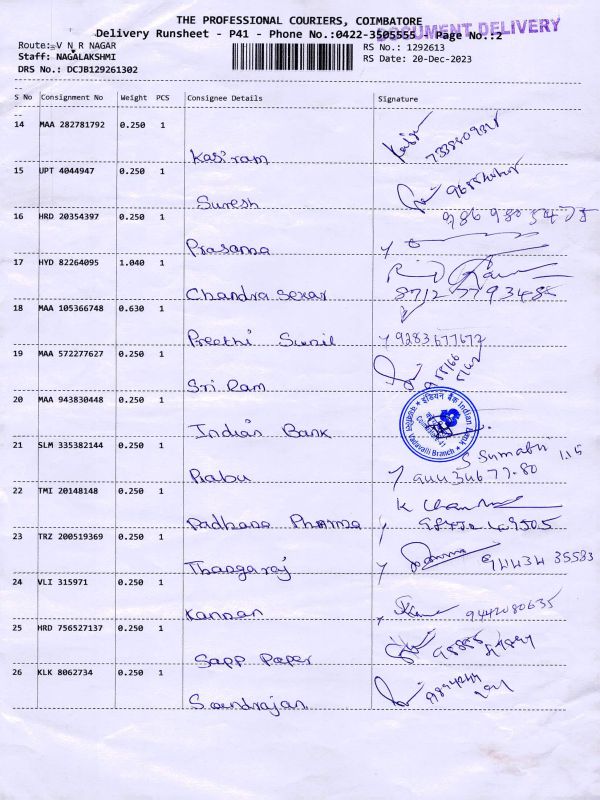 THE PROFESSIONAL COURIERS, COIMBATORE
DOCUMENT DELIVERY
Delivery Runsheet - P41 - Phone No.:0422-3505555 Page No.:2
Route: V N R NAGAR
RS No.: 1292613
Staff: NAGALAKSHMI
RS Date: 20-Dec-2023
DRS No.: DCJB129261302
S No Consignment No Weight PCS Consignee Details Signature
14 MAA 282781792 0.250 1
Kasiram
15 UPT 4044947 0.250 1
Suresh
16 HRD 20354397 0.250 1
Prasanna
17 HYD 82264095 1.040 1
Chandra sekar
18 MAA 105366748 0.630 1
Preethi Sunil 9283677677
19 MAA 572277627 0.250 1
Sri Ram
20 MAA 943830448 0.250 1
इंडियन बैंक Indian Bank
Vadavalli Branch
Indian Bank
21 SLM 335382144 0.250 1
S Sumathi
Prabu
22 TMI 20148148 0.250 1
Padhana Pharma
23 TRZ 200519369 0.250 1
Thangaraj 94434 35583
24 VLI 315971 0.250 1
Kannan 9442080635
25 HRD 756527137 0.250 1
Sapp Paper
26 KLK 8062734 0.250 1
Soundrajan